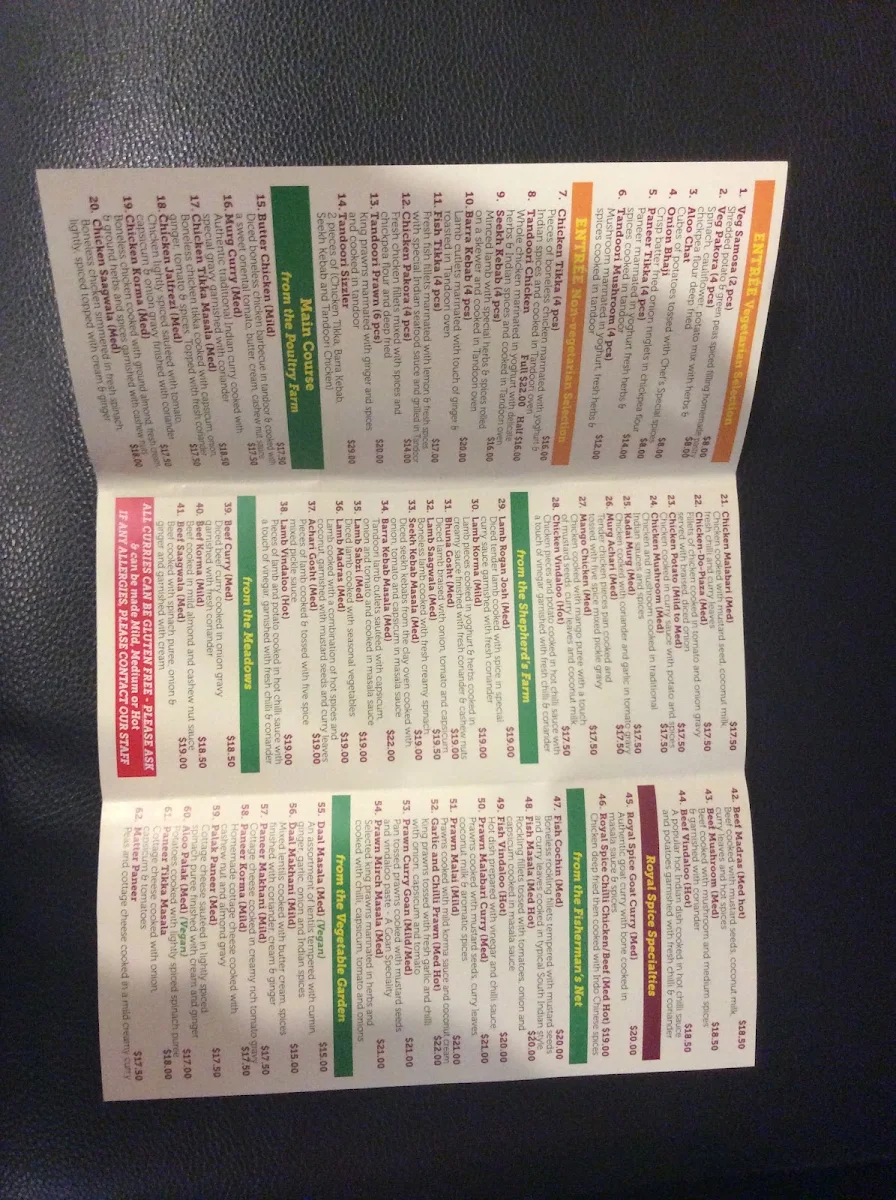 ENTRÉE Vegetarian Selection
1. Veg Samosa (2 pcs) $8.00
Shredded potato & green peas spiced filling homemade pastry
2. Veg Pakora (4 pcs) $8.00
Spinach, cauliflower, potato mix with herbs &
chickpea flour deep fried
3. Aloo Chat
Cubes of potatoes tossed with Chef's Special spices
4. Onion Bhaji $8.00
Crisp batter fried onion ringlets in chickpea flour
5. Paneer Tikka (4 pcs)
Paneer marinated in yoghurt fresh herbs &
spices cooked in tandoor $14.00
6. Tandoori Mushroom (4 pcs)
Mushroom marinated in yoghurt, fresh herbs &
spices cooked in tandoor $12.00
ENTRÉE Non-vegetarian Selection
7. Chicken Tikka (4 pcs) $16.00
Pieces of boneless chicken marinated with yoghurt &
Indian spices and cooked in Tandoori oven
8. Tandoori Chicken Full $22.00 Half $16.00
Whole chicken marinated in yoghurt with delicate
herbs & Indian spices and cooked in Tandoori oven
9. Seekh Kebab (4 pcs) $16.00
Minced lamb with special herbs & spices rolled
on a skewer, smoked in Tandoori oven
10. Barra Kebab (4 pcs) $20.00
Lamb cutlets marinated with touch of ginger &
roasted in tandoori oven
11. Fish Tikka (4 pcs) $17.00
Fresh fish fillets marinated with lemon & fresh spices
with special Indian seafood sauce and grilled in Tandoor
12. Chicken Pakora (4 pcs) $14.00
Fresh chicken fillets mixed with spices and
chickpea flour and deep fried
13. Tandoori Prawn (6 pcs) $20.00
King prawn marinated with ginger and spices
and cooked in tandoor
14. Tandoori Sizzler $29.00
2 pieces of (Chicken Tikka, Barra Kebab,
Seekh Kebab and Tandoori Chicken)
Main Course
from the Poultry Farm
15. Butter Chicken (Mild) $17.50
Diced boneless chicken barbecue in tandoor & cooked with
a sweet oriental tomato, butter cream & cashew nut sauce
16. Murg Curry (Med) $17.50
Authentic North Indian curry cooked with
special gravy garnished with coriander
17. Chicken Tikka Masala (Med) $18.50
Boneless chicken tikka cooked with capsicum, onion,
ginger, tomato & spices. Topped with fresh coriander
18. Chicken Jalfrezi (Med) $17.50
Chicken lightly spiced sauteed with tomato,
capsicum & onion gravy finished with coriander
19. Chicken Korma (Med) $17.50
Boneless chicken cooked with ground almond, fresh cream
& ground herbs and spices garnished with cashew nuts
20. Chicken Saagwala (Med) $18.00
Boneless chicken simmered in fresh spinach,
lightly spiced topped with cream & ginger
21. Chicken Malabari (Med) $17.50
Chicken cooked with mustard seed, coconut milk,
fresh chilli and curry leaves
22. Chicken-Do-Plaza (Med) $17.50
Fillet of chicken cooked in tomato and onion gravy
served with sauteed diced onion
23. Chicken Potato (Mild to Med) $17.50
Chicken cooked in curry sauce with potato and spices
24. Chicken Mushroom (Med) $17.50
Chicken & mushroom cooked in traditional
Indian sauces and spices
25. Kadai Murg (Med) $17.50
Chicken cooked with coriander and garlic in tomato gravy
26. Murg Achari (Med) $17.50
Tender chicken pieces pan cooked and
tossed with five spice mixed pickle gravy
27. Mango Chicken (Med) $17.50
Chicken cooked with mango puree with a touch
of mustard seeds, curry leaves and coconut milk
28. Chicken Vindaloo (Hot) $17.50
Chicken and potato cooked in hot chilli sauce with
a touch of vinegar garnished with fresh chilli & coriander
from the Shepherd's Farm
29. Lamb Rogan Josh (Med) $19.00
Diced tender lamb cooked with spice in special
curry sauce garnished with fresh coriander
30. Lamb Korma (Mild) $19.00
Lamb pieces cooked in yoghurt & herbs cooked in
creamy sauce finished with fresh coriander & cashew nuts
31. Bhuna Gosht (Med) $19.00
Diced lamb braised with onion, tomato and capsicum
32. Lamb Saagwala (Med) $19.50
Boneless lamb cooked with fresh creamy spinach
33. Seekh Kebab Masala (Med) $19.00
Diced seekh kebabs from the clay oven cooked with
onion tomato and capsicum in masala sauce
34. Barra Kebab Masala (Med) $22.00
Tandoori lamb cutlets sautéed with capsicum,
onion and tomato and cooked in masala sauce
35. Lamb Sabzi (Med) $19.00
Diced lamb cooked with seasonal vegetables
36. Lamb Madras (Med) $19.00
Lamb cooked with a combination of hot spices and
coconut garnished with mustard seeds and curry leaves
37. Achari Gosht (Med) $19.00
Pieces of lamb cooked & tossed with five spice
mixed pickle
38. Lamb Vindaloo (Hot) $19.00
Pieces of lamb and potato cooked in hot chilli sauce with
a touch of vinegar, garnished with fresh chilli & coriander
from the Meadows
39. Beef Curry (Med) $18.50
Diced beef curry cooked in onion gravy
garnished with fresh coriander
40. Beef Korma (Mild) $18.50
Beef cooked in mild almond and cashew nut sauce
41. Beef Saagwala (Med) $19.00
Beef cooked with spinach puree, onion &
ginger and garnished with cream
ALL CURRIES CAN BE GLUTEN FREE - PLEASE ASK
& can be made Mild, Medium or Hot
IF ANY ALLERGIES, PLEASE CONTACT OUR STAFF
42. Beef Madras (Med hot) $18.50
Beef cooked with mustard seeds, coconut milk,
curry leaves and hot spices
43. Beef Mushroom (Med) $18.50
Beef cooked with mushroom and medium spices
& garnished with coriander
44. Beef Vindaloo (Hot) $18.50
A popular hot Indian dish cooked in hot chilli sauce
and potatoes garnished with fresh chilli & coriander
Royal Spice Specialties
45. Royal Spice Goat Curry (Med) $20.00
Authentic goat curry with bone cooked in
masala sauce & spices
46. Royal Spice Chilli Chicken/Beef (Med Hot) $19.00
Chicken deep fried then cooked with Indo Chinese spices
from the Fisherman's Net
47. Fish Cochin (Med) $20.00
Boneless rockling fillets tempered with mustard seeds
and curry leaves cooked in typical south Indian style
48. Fish Masala (Med Hot) $20.00
Rockling fillets tossed with tomatoes, onion and
capsicum cooked in masala sauce
49. Fish Vindaloo (Hot) $20.00
Hot dish prepared with vinegar and chilli sauce
50. Prawn Malabari Curry (Med) $21.00
Prawns cooked with mustard seeds, curry leaves
coconut milk and aromatic spices
51. Prawn Malai (Mild) $21.00
Prawns cooked with mild korma sauce and coconut cream
52. Garlic and Chilli Prawn (Med Hot) $22.00
King prawns tossed with fresh garlic and chilli
with onion, capsicum and tomato
53. Prawn Curry Goan (Mild/Med) $21.00
Pan seared prawns cooked with mustard seeds
and vindaloo paste - A Goan Speciality
54. Prawn Mirch Masala (Med) $21.00
Selected king prawns marinated in herbs and
cooked with chilli, capsicum, tomato and onions
from the Vegetable Garden
55. Daal Masala (Med) (Vegan) $15.00
An assortment of lentils tempered with cumin,
ginger, garlic, onion and Indian spices
56. Daal Makhani (Mild) $15.00
Mixed lentils cooked with butter cream, spices
finished with coriander, cream & ginger
57. Paneer Makhani (Mild) $17.50
Cottage cheese cooked in creamy rich tomato gravy
58. Paneer Korma (Mild) $17.50
Homemade cottage cheese cooked with
cashewnuts and almonds gravy
59. Palak Paneer (Med) $17.50
Cottage cheese sauteed in lightly spiced
spinach puree finished with cream and ginger
60. Aloo Palak (Med) (Vegan) $17.00
Potatoes cooked with lightly spiced spinach puree
61. Paneer Tikka Masala $18.00
Cottage cheese cooked with onion,
capsicum & tomatoes
62. Mutter Paneer $17.50
Peas and cottage cheese cooked in a mild creamy curry